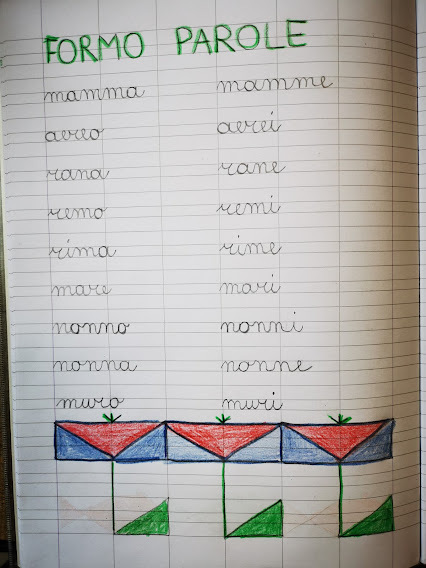 FORMO PAROLE
mamma mamme
aereo aerei
rana rane
remo remi
rima rime
mare mari
nonno nonni
nonna nonne
muro muri